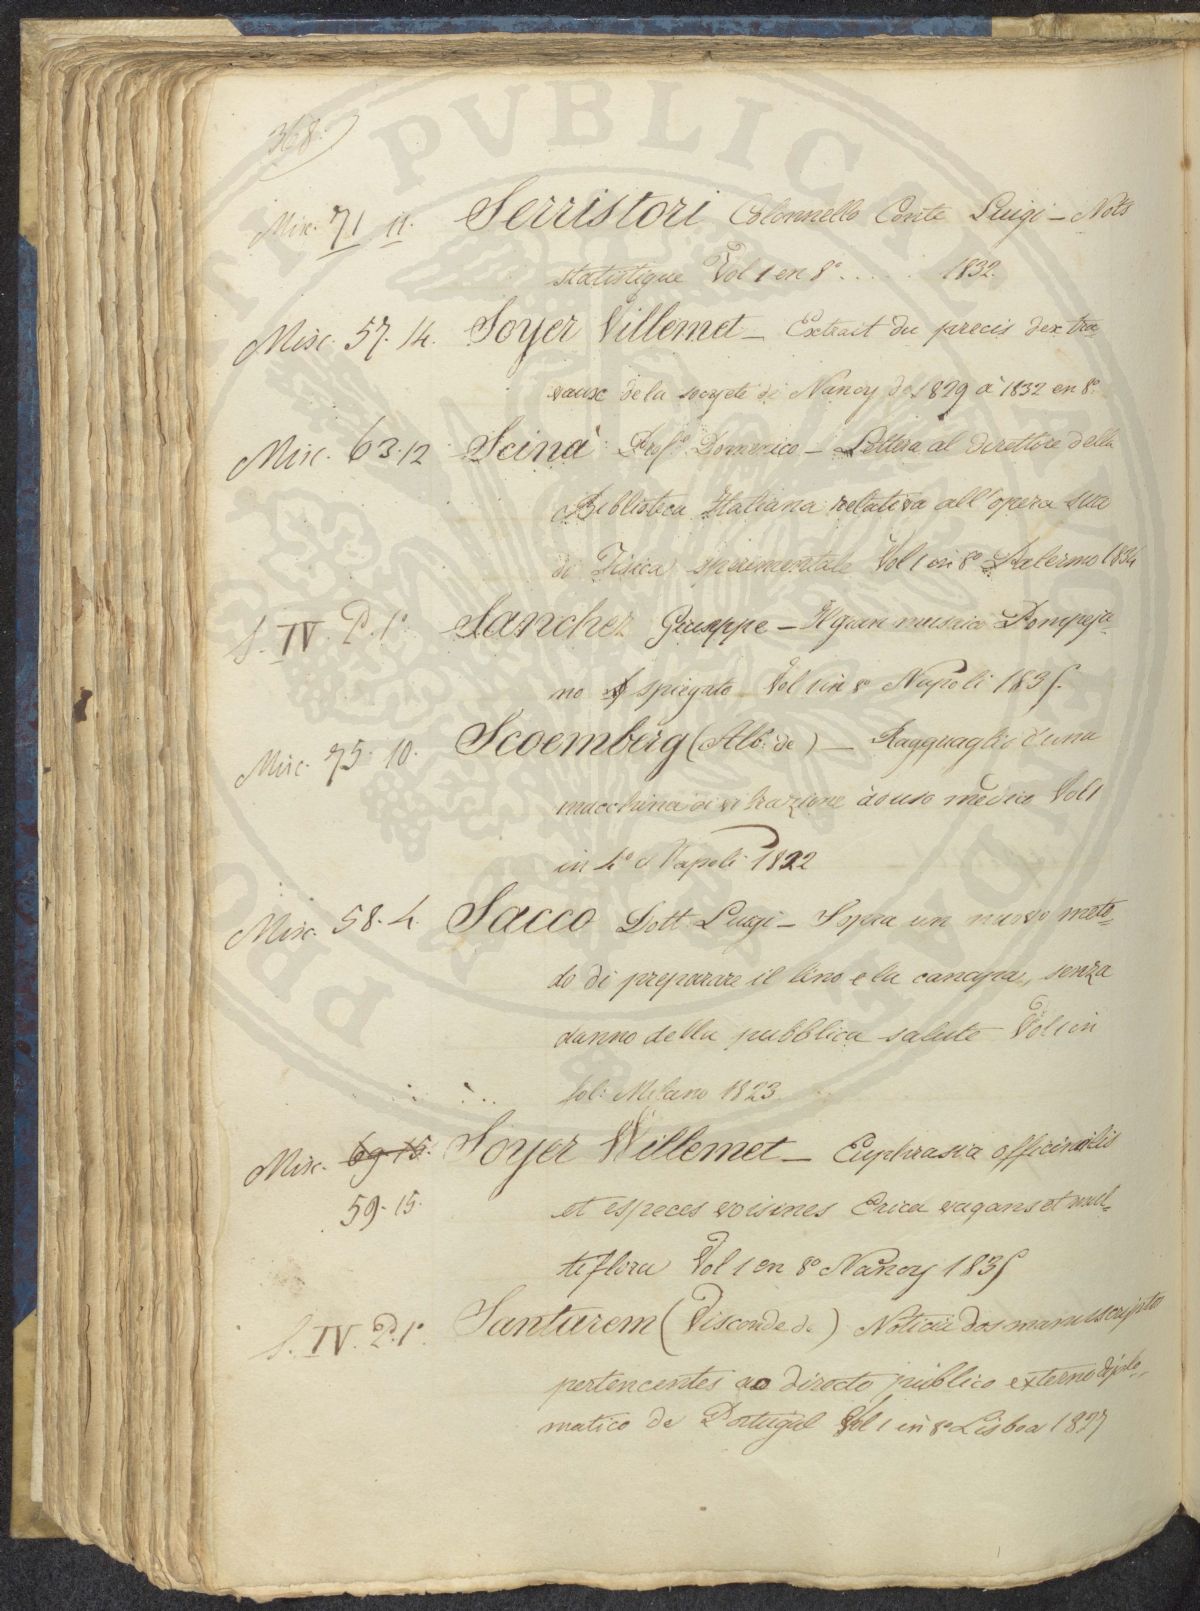 368.
Misc. 71 11. Serristori Colonnello Conte Luigi - Nots
statistique Vol 1 en 8° ..... 1832.
Misc. 57. 14. Soyer Villemet - Extrait du precis dex tra
vaux de la socyeté di Nancy de 1829 à 1832 en 8°
Misc. 63.12 Scinà Prof.e Domenico - Lettera al direttore della
Biblioteca Italiana relativa all'opera sua
di Fisica sperimentale Vol 1 in 8° Palermo 1834
S. IV P. 1° Sanchez Giuseppe - Il gran musaico Pompeja-
no spiegato Vol 1 in 8° Napoli 1835.
Misc. 75. 10. Scoemberg (Alb: de) - Ragguaglio d'una
macchina di vibrazione ad uso medico Vol 1
in 4° Napoli 1822
Misc. 58. 4. Sacco Dott Luigi - Sopra un nuovo meto-
do di preparare il lino e la canapa, senza
danno della pubblica salute Vol 1 in
fol: Milano 1823.
Misc. 69-15. Soyer Willemet - Euphrasia officinalis
59-15. et especes voisines Erica vagans et mul-
tiflora Vol 1 en 8° Nancy 1835
S. IV. P. 1° Santarem (Visconde de) Noticia dos manuscripto
pertencentes ao directo publico externo diplo-
matico de Portugal Vol 1 in 8° Lisboa 1827
PROPRIETATI PVBLICAE